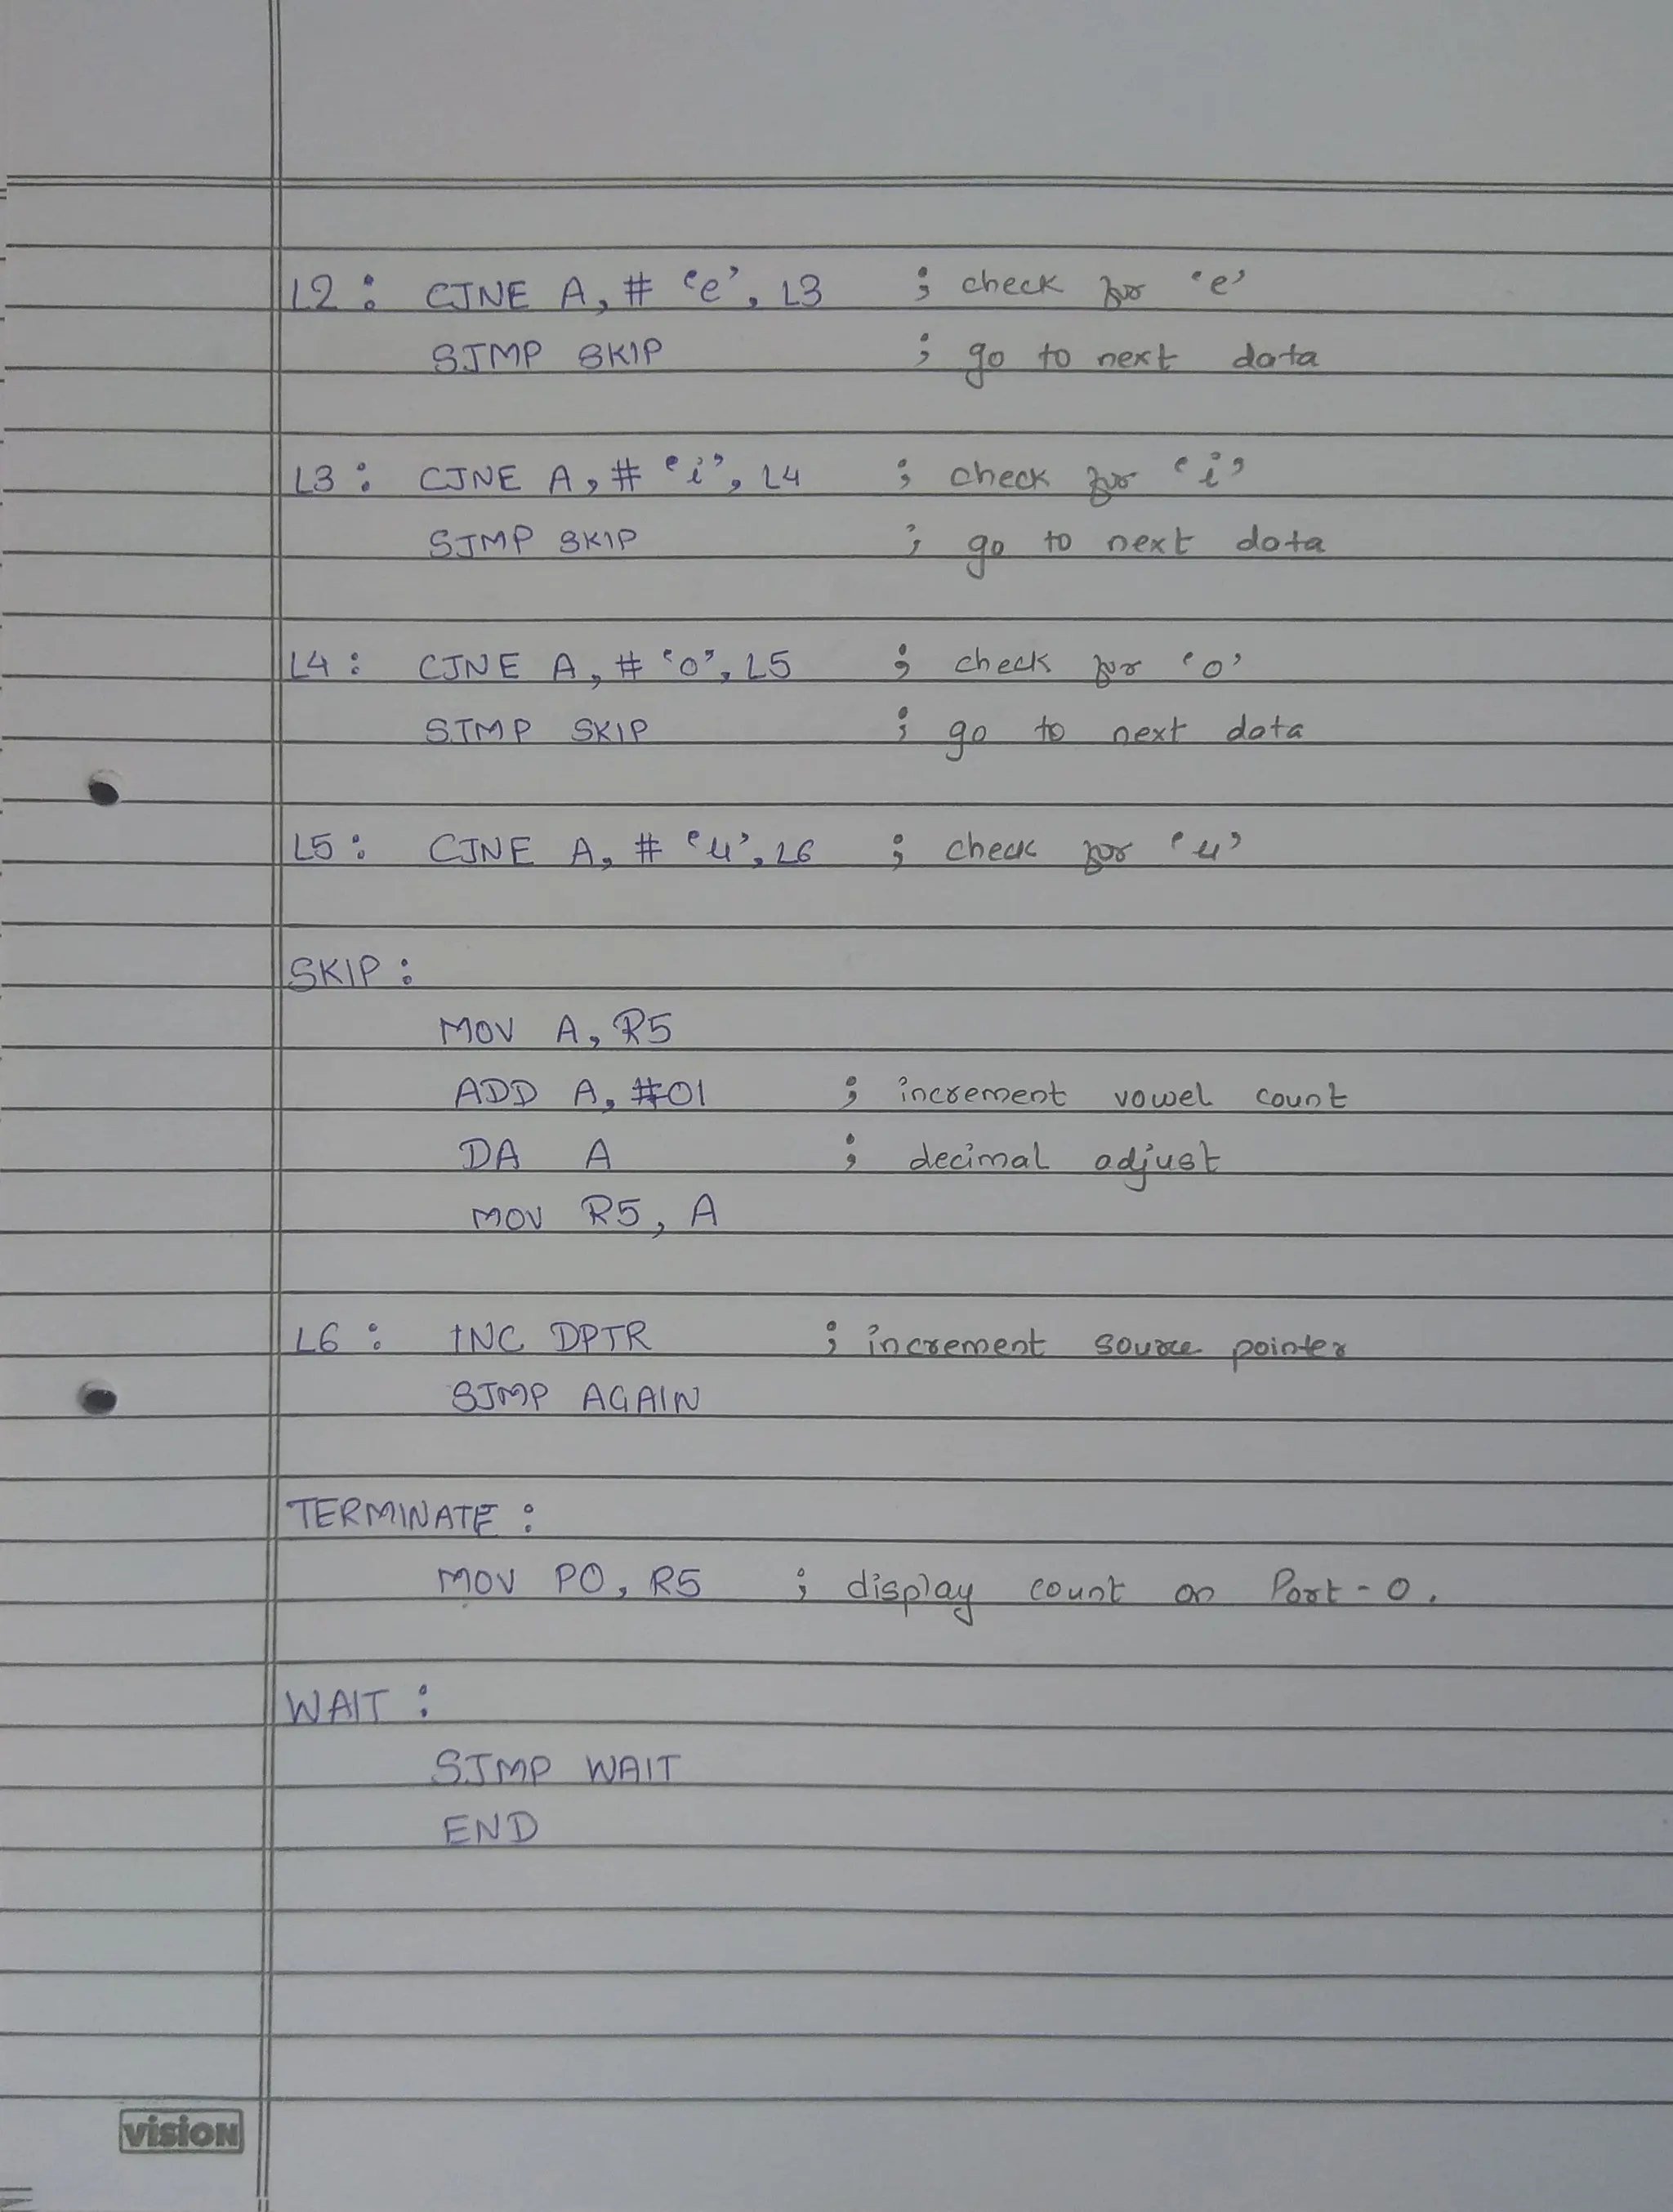 L2 : CJNE A, # 'e', L3 ; check for 'e'
SJMP SKIP ; go to next data
L3 : CJNE A, # 'i', L4 ; check for 'i'
SJMP SKIP ; go to next data
L4 : CJNE A, # 'o', L5 ; check for 'o'
SJMP SKIP ; go to next data
L5 : CJNE A, # 'u', L6 ; check for 'u'
SKIP :
MOV A, R5
ADD A, #01 ; increment vowel count
DA A ; decimal adjust
MOV R5, A
L6 : INC DPTR ; increment source pointer
SJMP AGAIN
TERMINATE :
MOV P0, R5 ; display count on Port - 0.
WAIT :
SJMP WAIT
END
vision